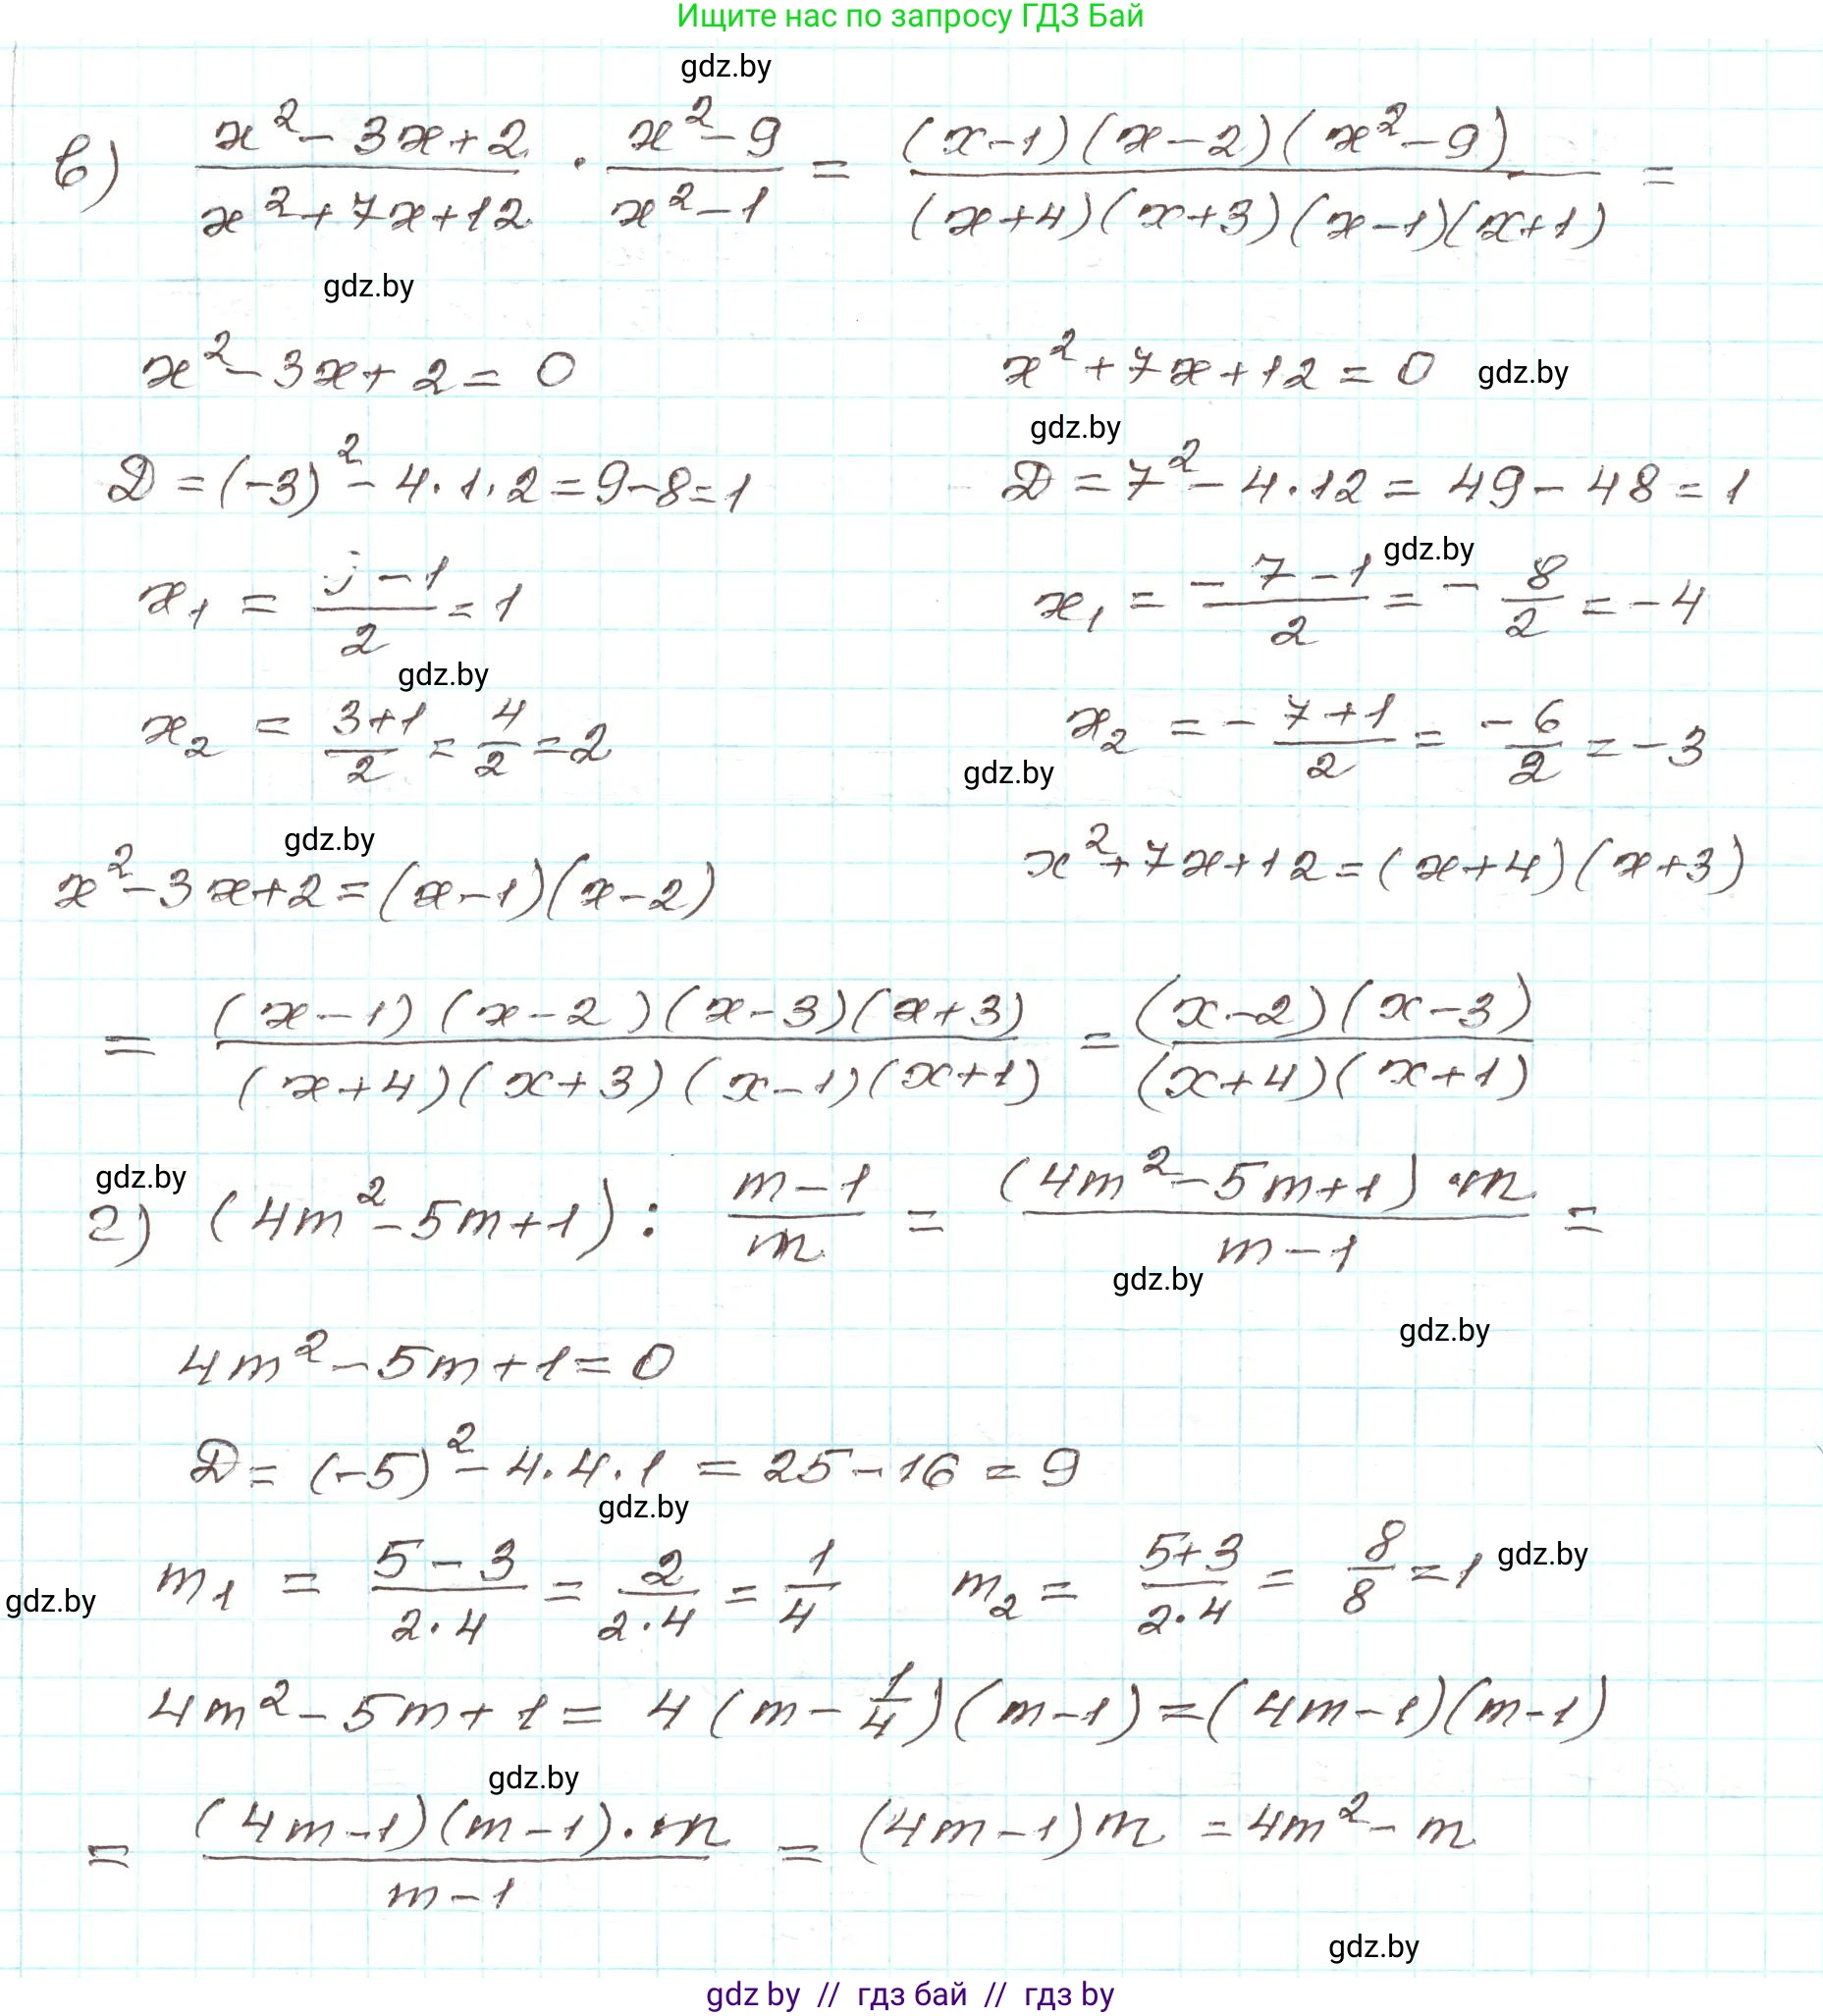 Ищите нас по запросу ГДЗ Бай
gdz.by
в) (x² - 3x + 2)/(x² + 7x + 12) · (x² - 9)/(x² - 1) = ((x-1)(x-2)(x²-9))/((x+4)(x+3)(x-1)(x+1)) =
gdz.by
x² - 3x + 2 = 0
x² + 7x + 12 = 0 gdz.by
gdz.by
D = (-3)² - 4·1·2 = 9-8 = 1
D = 7² - 4·12 = 49 - 48 = 1
gdz.by
x₁ = (3-1)/2 = 1
x₁ = (-7-1)/2 = -8/2 = -4
gdz.by
x₂ = (3+1)/2 = 4/2 = 2
x₂ = -(7+1)/2 = -6/2 = -3
gdz.by
gdz.by
x² - 3x + 2 = (x-1)(x-2)
x² + 7x + 12 = (x+4)(x+3)
= ((x-1)(x-2)(x-3)(x+3))/((x+4)(x+3)(x-1)(x+1)) = ((x-2)(x-3))/((x+4)(x+1))
gdz.by
г) (4m² - 5m + 1) : (m-1)/m = ((4m² - 5m + 1)·m)/(m-1) =
gdz.by
gdz.by
4m² - 5m + 1 = 0
D = (-5)² - 4·4·1 = 25 - 16 = 9
gdz.by
m₁ = (5-3)/(2·4) = 2/(2·4) = 1/4 m₂ = (5+3)/(2·4) = 8/8 = 1 gdz.by
gdz.by
4m² - 5m + 1 = 4(m - 1/4)(m-1) = (4m-1)(m-1)
gdz.by
= ((4m-1)(m-1)·m)/(m-1) = (4m-1)m = 4m² - m
gdz.by
gdz by // гдз бай // гдз by